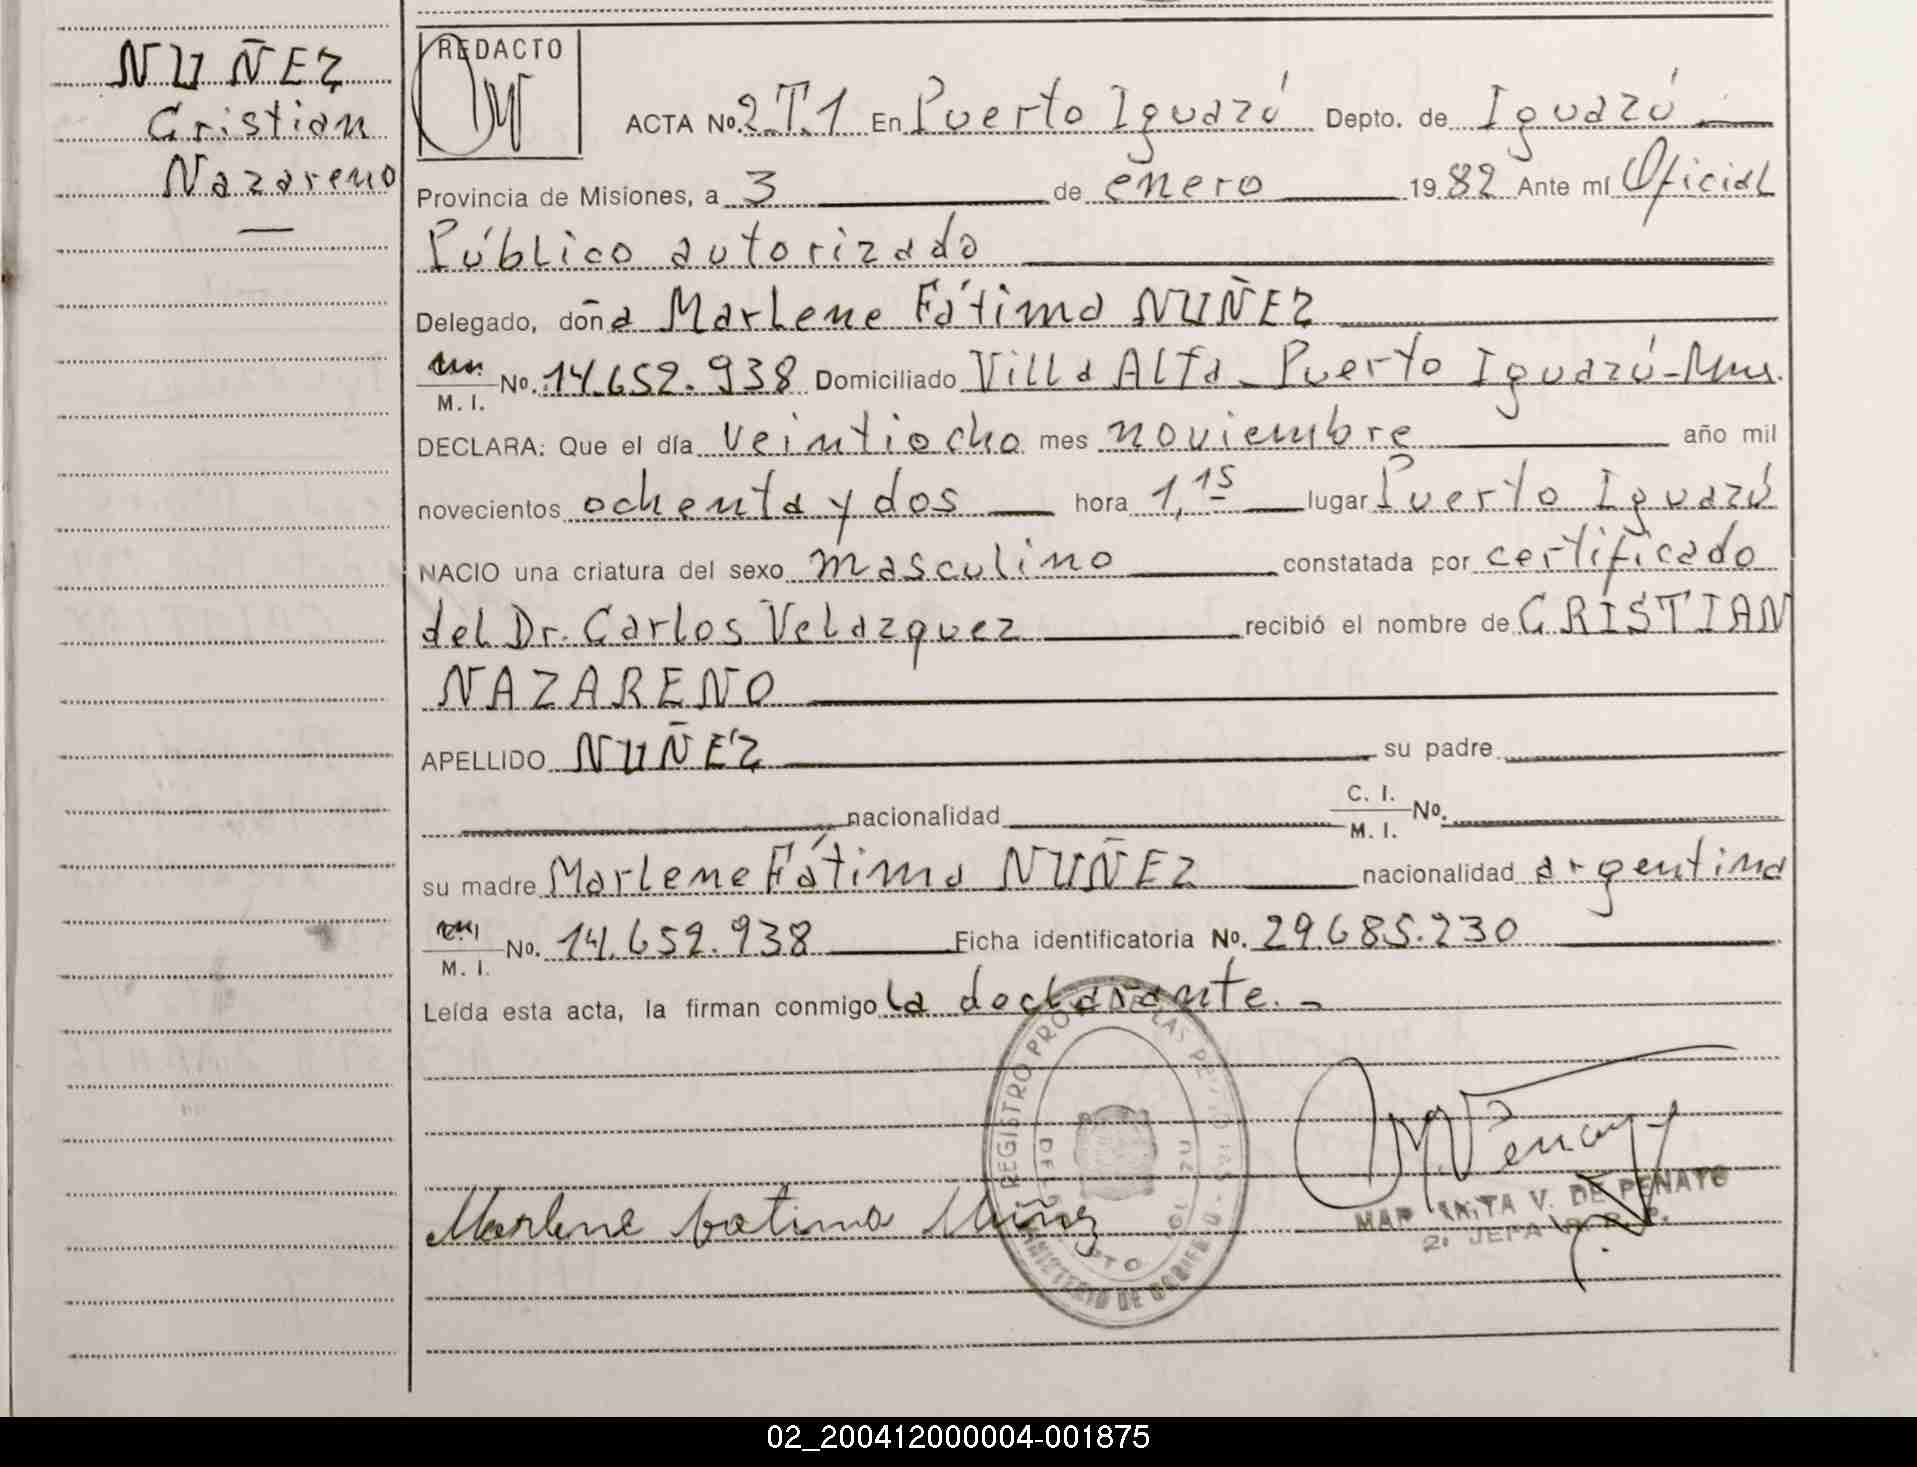 NUÑEZ
Cristian
Nazareno
REDACTO
ACTA No. 2.T.1 En Puerto Iguazú Depto. de Iguazú
Provincia de Misiones, a 3 de enero 1982 Ante mí Oficial
Público autorizado
Delegado, doña Marlene Fátima NUÑEZ
M. I. No. 14.652.938 Domiciliado Villa Alta - Puerto Iguazú - Mnes.
DECLARA: Que el día veintiocho mes noviembre año mil
novecientos ochenta y dos hora 1,15 lugar Puerto Iguazú
NACIO una criatura del sexo masculino constatada por certificado
del Dr. Carlos Velazquez recibió el nombre de CRISTIAN
NAZARENO
APELLIDO NUÑEZ su padre
nacionalidad C. I. M. I. No.
su madre Marlene Fátima NUÑEZ nacionalidad argentina
M. I. No. 14.652.938 Ficha identificatoria No. 29.685.230
Leída esta acta, la firman conmigo la declarante.-
REGISTRO PROV. DE LAS PERSONAS
MINISTERIO DE GOBIERNO
Marlene Fatima Núñez
MARGARITA V. DE PENAYO
2º JEFA
02_200412000004-001875